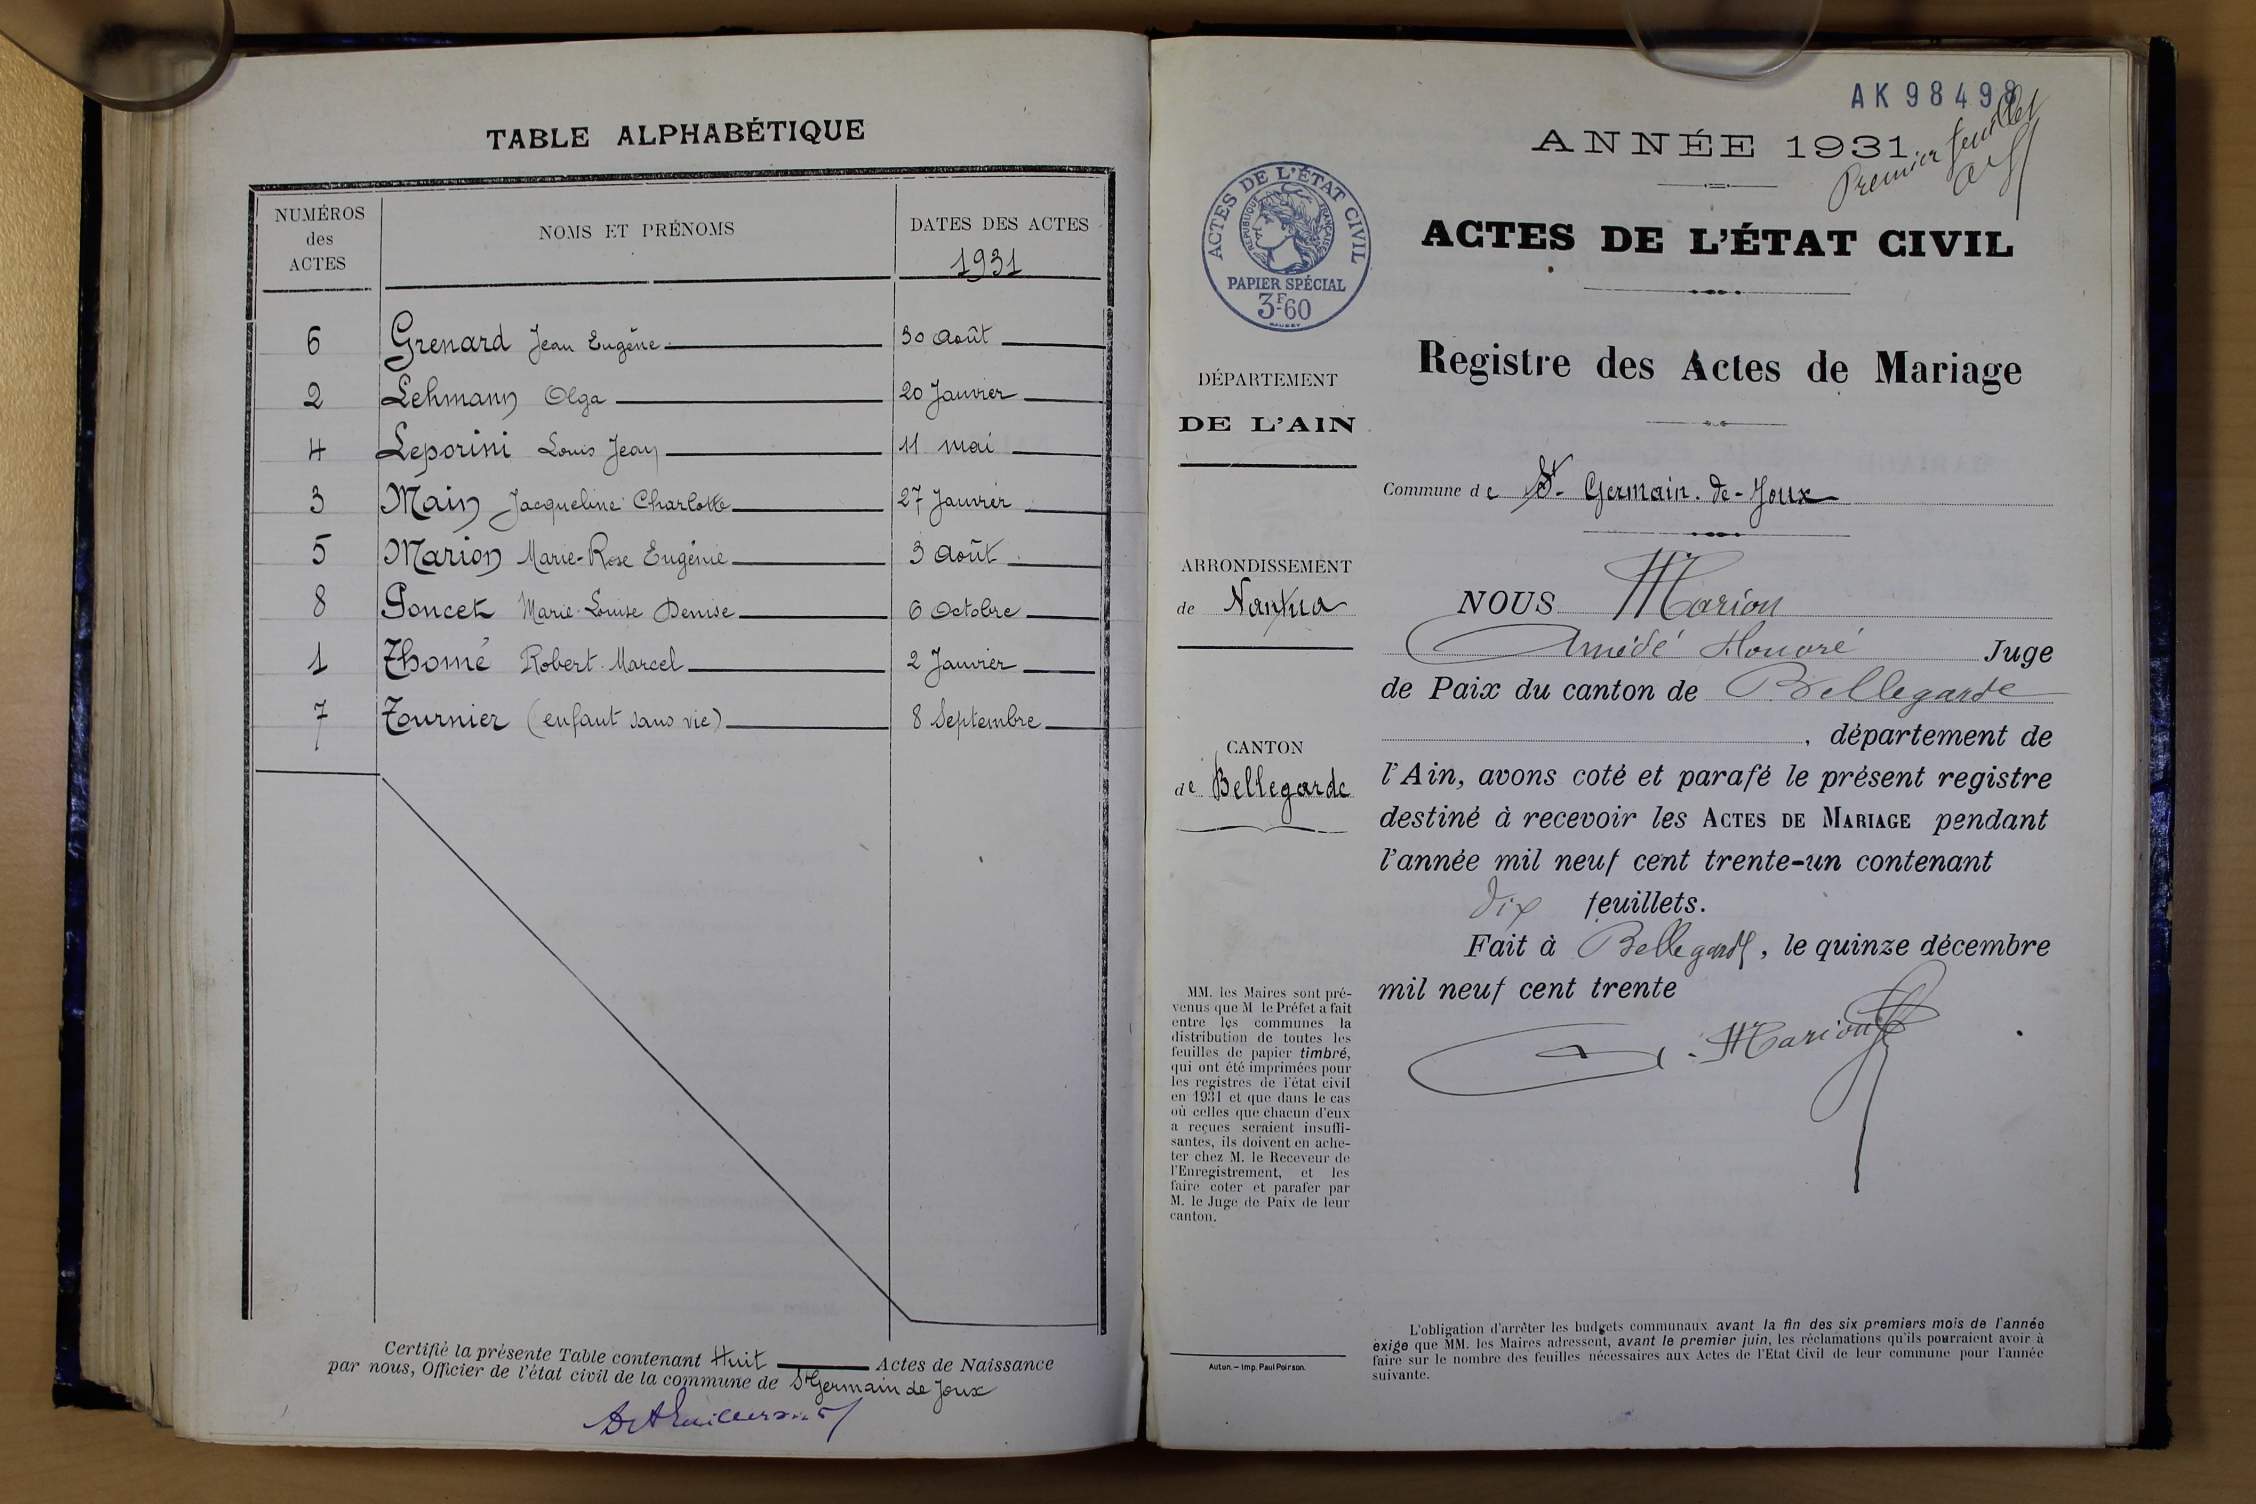 TABLE ALPHABÉTIQUE
NUMÉROS des ACTES
NOMS ET PRÉNOMS
DATES DES ACTES
1931
6 Grenard Jean Eugène 30 Août
2 Lehmann Olga 20 Janvier
4 Leporini Louis Jean 11 mai
3 Main Jacqueline Charlotte 27 Janvier
5 Marion Marie-Rose Eugénie 3 Août
8 Poncet Marie-Louise Denise 6 Octobre
1 Thomé Robert-Marcel 2 Janvier
7 Tournier (enfant sans vie) 8 Septembre
Certifié la présente Table contenant Huit Actes de Naissance
par nous, Officier de l'état civil de la commune de St Germain de Joux
AK 98498
Premier feuillet
ANNÉE 1931
ACTES DE L'ÉTAT CIVIL
RÉPUBLIQUE FRANÇAISE
PAPIER SPÉCIAL
3F60
ACTES DE L'ÉTAT CIVIL
Registre des Actes de Mariage
DÉPARTEMENT
DE L'AIN
Commune de St- Germain-de-Joux
ARRONDISSEMENT
de Nantua
CANTON
de Bellegarde
NOUS Marion
Amédé Honoré Juge
de Paix du canton de Bellegarde
, département de
l'Ain, avons coté et parafé le présent registre
destiné à recevoir les ACTES DE MARIAGE pendant
l'année mil neuf cent trente-un contenant
dix feuillets.
Fait à Bellegarde, le quinze décembre
mil neuf cent trente
Marion
MM. les Maires sont pré-
venus que M le Préfet a fait
entre les communes la
distribution de toutes les
feuilles de papier timbré,
qui ont été imprimées pour
les registres de l'état civil
en 1931 et que dans le cas
où celles que chacun d'eux
a reçues seraient insuffi-
santes, ils doivent en ache-
ter chez M. le Receveur de
l'Enregistrement, et les
faire coter et parafer par
M. le Juge de Paix de leur
canton.
Autun. — Imp. Paul Poirson.
L'obligation d'arrêter les budgets communaux avant la fin des six premiers mois de l'année
exige que MM. les Maires adressent, avant le premier juin, les réclamations qu'ils pourraient avoir à
faire sur le nombre des feuilles nécessaires aux Actes de l'Etat Civil de leur commune pour l'année
suivante.